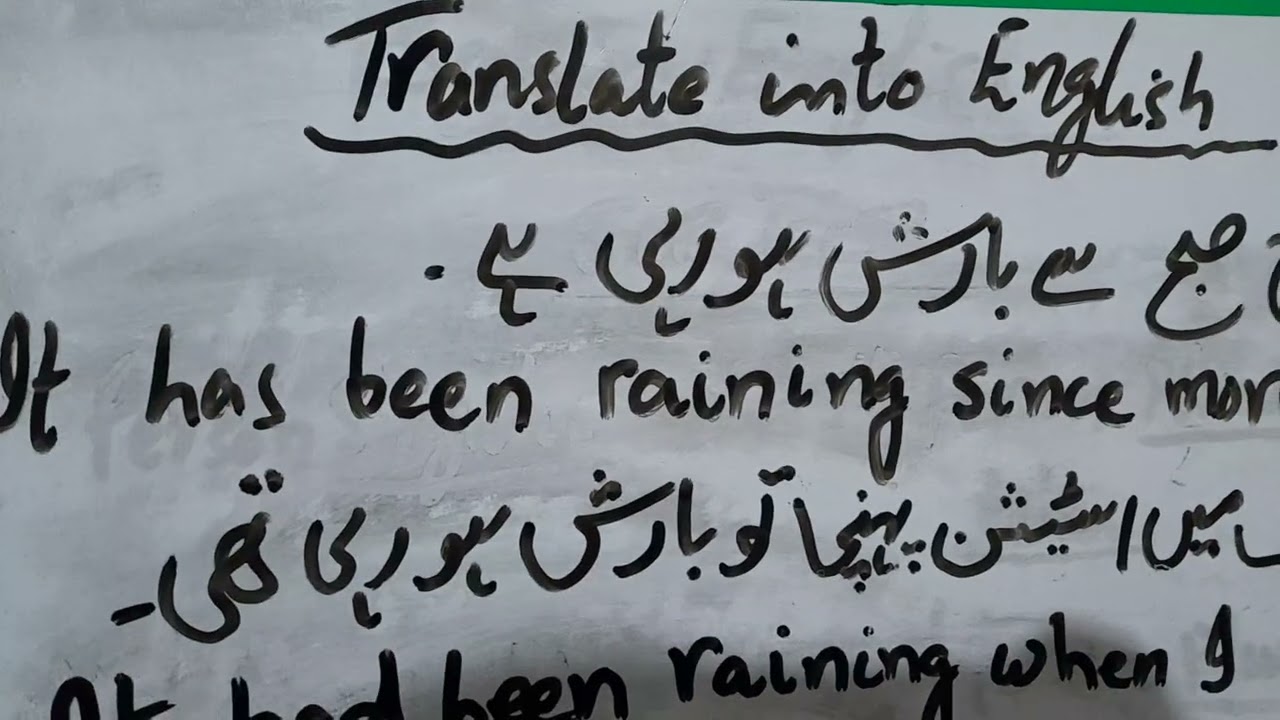 Translate into English
صبح سے بارش ہو رہی ہے ۔
It has been raining since mor
میں اسٹیشن پہنچا تو بارش ہو رہی تھی ۔
It had been raining when I